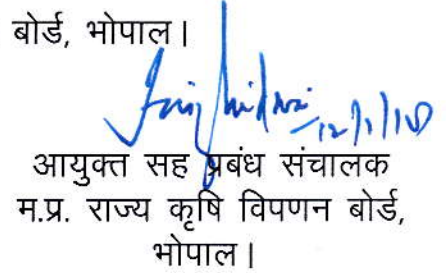 बोर्ड, भोपाल।
आयुक्त सह प्रबंध संचालक
म.प्र. राज्य कृषि विपणन बोर्ड,
भोपाल।